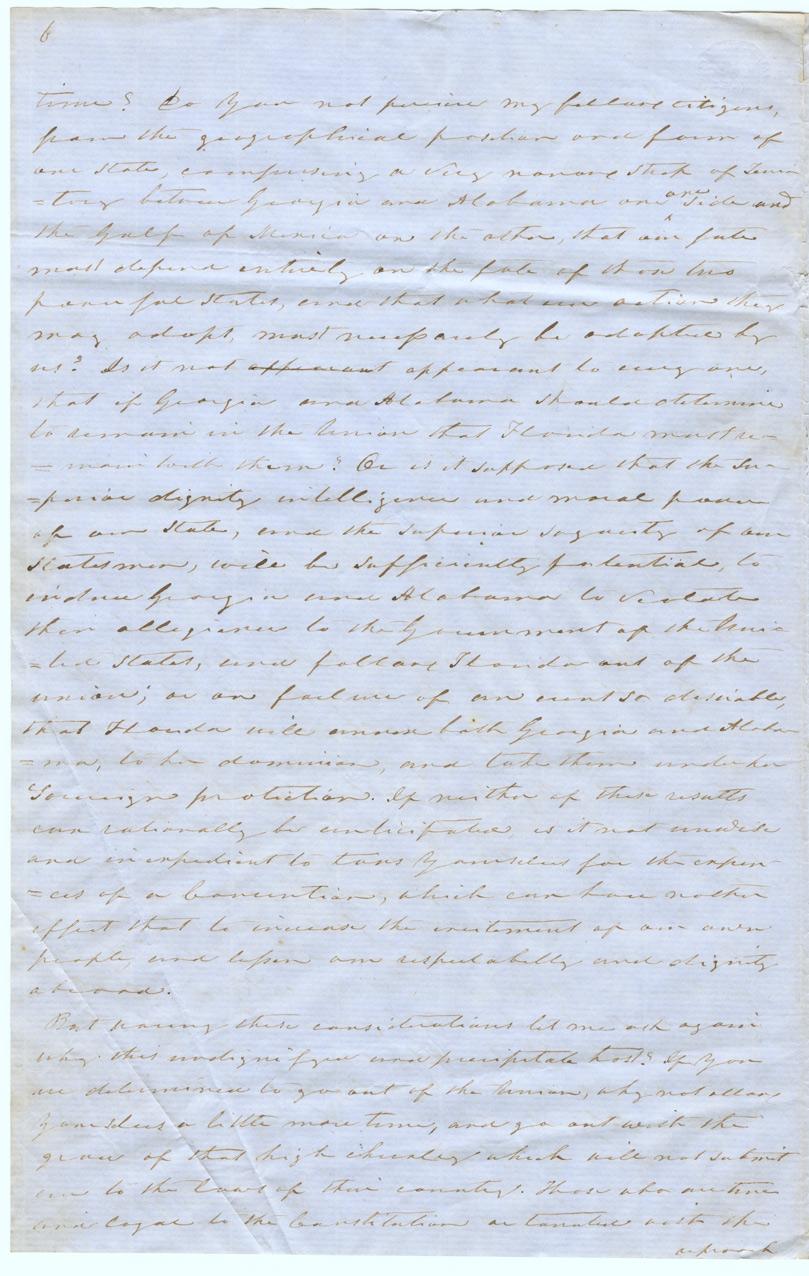 6
time? Do you not percive my fellow citizens,
from the geographical position and form of
our State, comprising a very narrow strip of Terri
=tory between Georgia and Alabama on one side and
the Gulf of Mexico on the other, that our fate
must depend entirely on the fate of those two
powerful States, and that whatever action they
may adopt, must necessarily be adopted by
us? Is it not apperant apperant to evry one,
that if Georgia and Alabama should determine
to remain in the Union that Florida must re-
=main with them? Or is it supposed that the su-
=perior dignity intelligence and moral power
of our State, and the superior sagacity of our
Statesmen, will be sufficiently potential, to
induce Georgia and Alabama to violate
their allegiance to the Government of the Uni-
=ted States, and follow Florida out of the
union; or on failure of an event so desirable,
that Florida will annex both Georgia and Alaba-
=ma, to her dominion, and take them under her
Sovereign protiction. If neither of these results
can rationally be anticipated, is it not unwise
and inexpedient to tax yourselves for the expen-
=ces of a Convention, which can have no other
effect that to increase the excitement of our own
people, and lessen our respectability and dignity
abroad.
But waving these considerations let me ask again
why this undignifyed and precipitate hast? If you
are determined to go out of the Union, why not allow
yourselves a little more time, and go out with the
grace of that high chivalry which will not submit
even to the laws of their country. Those who are true
and loyal to the Constitution are taunted with the
reproach